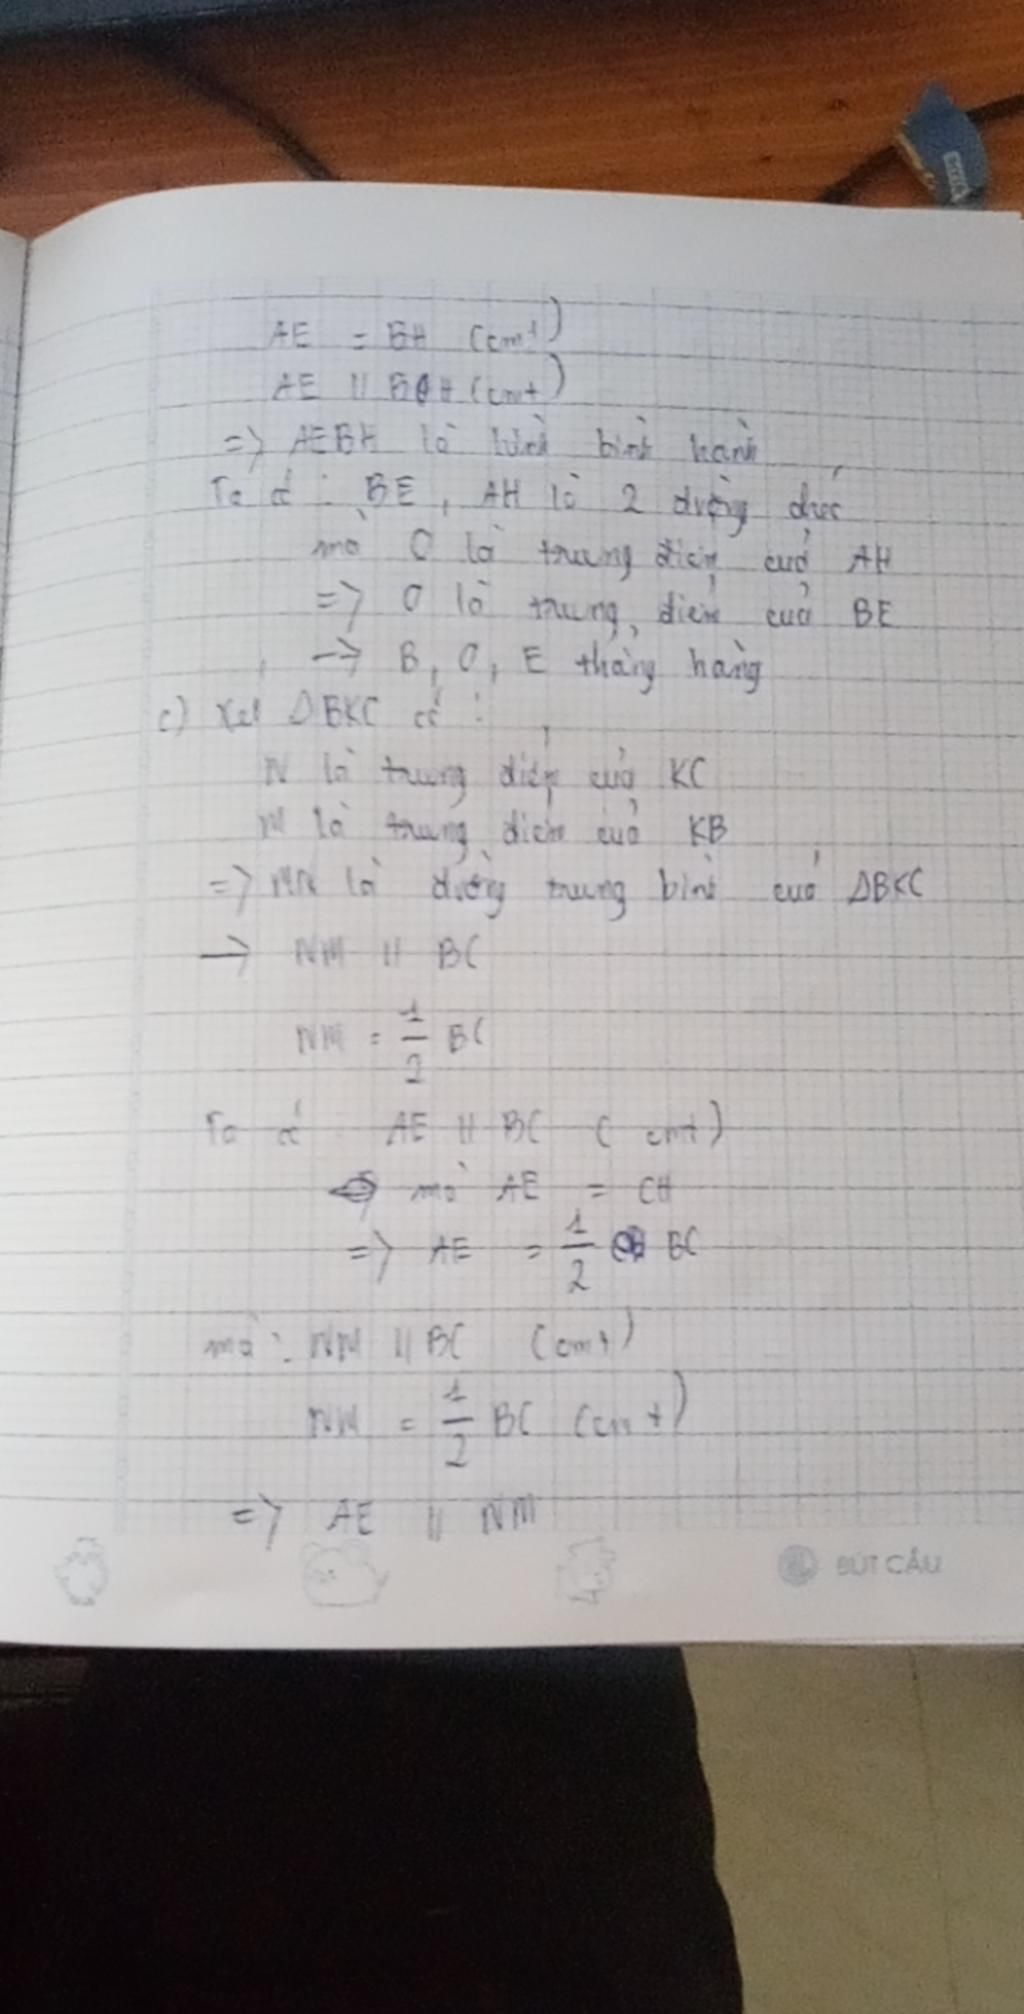 AE = BH (cmt)
AE // BH (cmt)
=> AEBH là hình bình hành
Ta có : BE, AH là 2 đường chéo
mà O là trung điểm của AH
=> O là trung điểm của BE
-> B, O, E thẳng hàng
c) Xét ΔBKC có :
N là trung điểm của KC
M là trung điểm của KB
=> MN là đường trung bình của ΔBKC
-> NM // BC
NM = 1/2 BC
Ta có AE // BC (cmt)
mà AE = CH
=> AE = 1/2 BC
mà : NM // BC (cmt)
NM = 1/2 BC (cmt)
=> AE // NM
BÚT CÂU